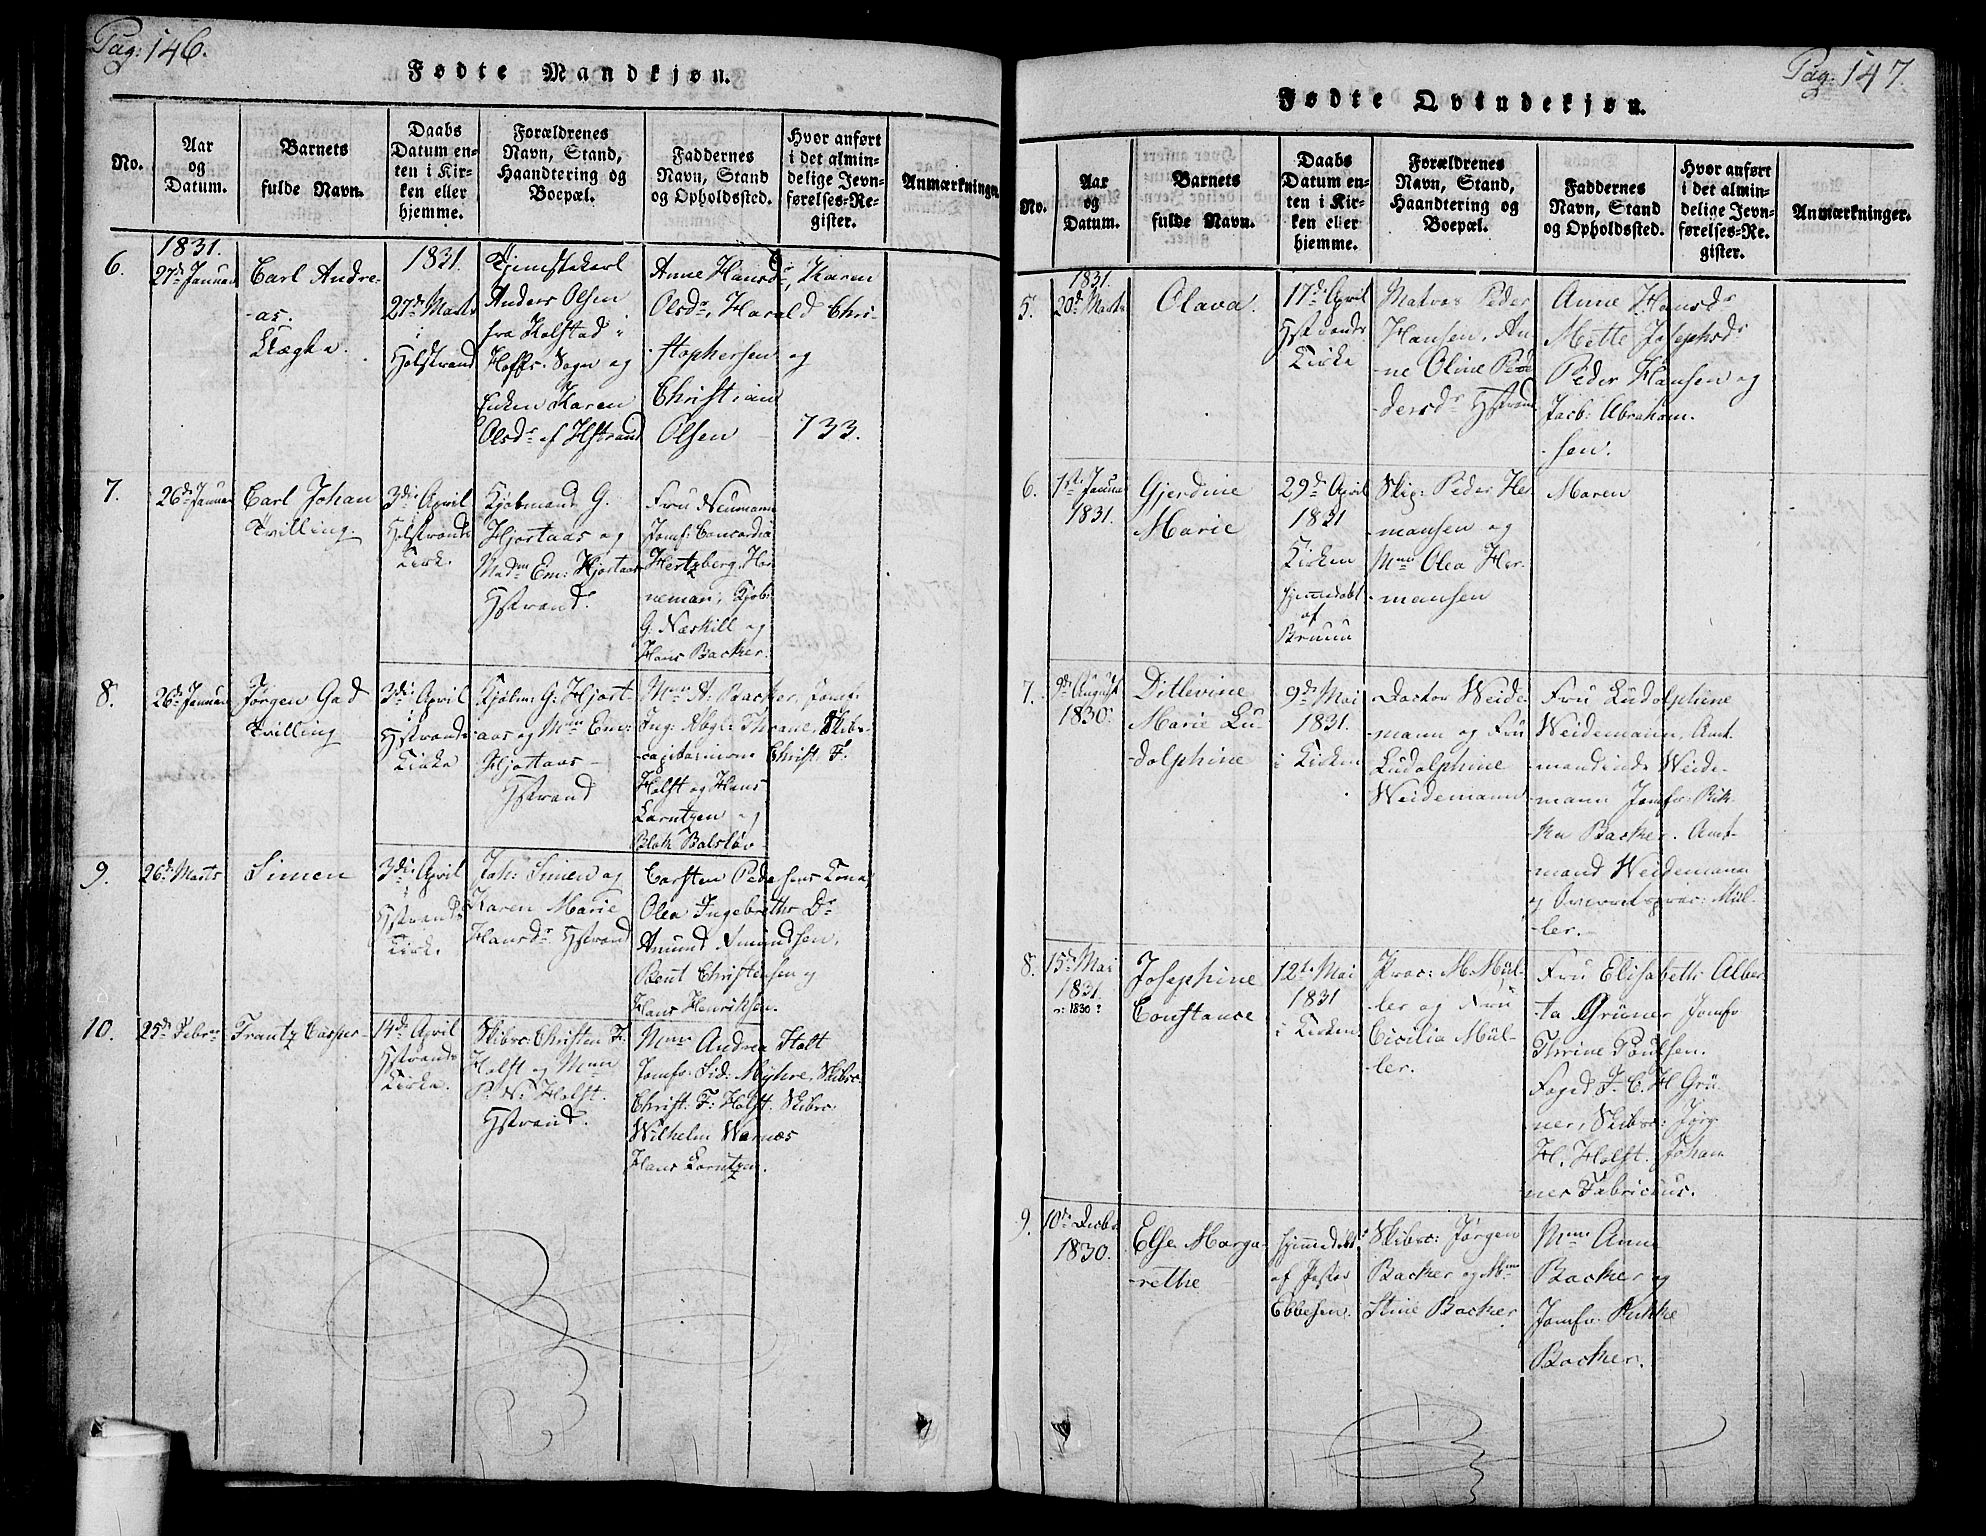 Pag: 146.
Fødte Mandkjøn.
No.
Aar
og
Datum.
Barnets
fulde Navn.
Daabs
Datum en-
ten i Kir-
ken eller
hjemme.
Forældrenes
Navn, Stand,
Haandtering og
Boepæl.
Faddernes
Navn, Stand
og Opholdssted.
Hvor anført
i det almin-
delige Jevn-
førelses-Re-
gister.
Anmærkninger
6.
1831.
27de Januar
Carl Andre-
-as.
1831.
27de Marts
i
Holstrand
Anders Olsen
fra Holstad
Hoffs Sogn og
Enken Karen
Olsdr af Hstrand
Anne Hansdr, Karen
Olsdr, Harald Chri-
-stophersen og
Christian
Olsen
733.
7.
26de Januar
Carl Johan
Tvilling
3die April
i
Holstrands
Kirke.
Kjøbmand G.
Hjortaas og
Madm Em: Hjortaas
Hstrand.
Fru Neumann
Jomf: Concordia
Hertzberg, Hor-
neman, Kjøb:
G. Næskill og
Hans Backer.
8.
26de Januar
Jørgen Gad
Tvilling
3die April
i
Hstrands
Kirke
Kjøbm: G: Hjort-
aas og Mme Em:
Hjortaas
Hstrand
Mme A: Backer, Jomf:
Ing: Abgl: Thrane, Skibs-
capitainerne Christ: F.
Holst og Hans
Lorntzen og
Balsløv
9.
26de Marts
Simen
3die April
i
Hstrands
Kirke.
Joh: Simen og
Karen Marie
Hansdr Hstrand
Carsten Pedersens Kone,
Olea Ingebreths Dr
Amund Amundsen,
Bent Christensen og
Hans Henriksen.
10.
25de Febr.
Frantz Casper
14de April
Hstrands
Kirke.
Skibsc: Christen F:
Holst og Mme
P: N: Holst.
Hstrand.
Mme Andrea Holt
Jomfr: Sid: Myhre, Skibsc:
Christ: F: Holst. Skibsc:
Wilhelm Warnes
Hans Lorntzen.
Pag: 147.
Fødte Qvindekjøn.
No.
Aar
og
Datum.
Barnets
fulde Navn.
Daabs
Datum en-
ten i Kir-
ken eller
hjemme.
Forældrenes
Navn, Stand,
Haandtering og
Boepæl.
Faddernes
Navn, Stand
og Opholdssted.
Hvor anført
i det almin-
delige Jevn-
førelses-Re-
gister.
Anmærkninger.
5.
1831.
20de Marts
Olava.
17de April
Hstrands
Kirke
Matros Peder
Hansen, An-
ne Oline Pe-
-dersdr Hstrand
Anne Hansdr
Mette Josephsdr
Peder Hansen og
Jacb: Abraham-
-sen.
6.
1ste Januar
1831.
Gjerdine
Marie
29de April
1831
Kirken
hjemmedøbt
af
Bruun
Skip: Peder Her-
mansen og
Mme Olea Her-
-mansen
Maren
7.
9de August
1830.
Ditlevine
Marie Lu-
-dolphine
9de Mai
1831.
i Kirken
Doctor Weide-
mann og Fru
Ludolphine
Weidemann
Fru Ludolphine
Weidemann, Amt-
mandinde Weide-
mann Jomfr: Rik-
ke Backer. Amt-
mand Weidemann
og Overretsproc: Mül-
ler.
8.
15de Mai
1831.
1830?
Josephine
Constance
12te Mai
1831
i Kirken
Proc: M. Mül-
-ler og Fru
Cicilia Mül-
-ler.
Fru Elisabeth Alber-
ta Grüner Jomfr
Thrine Poulsen.
Foged F. C. H. Grü-
ner, Skibsc: Jørg:
H. Holst. Johan-
nes Fabricius.
9.
10de Decbr
1830.
Else Marga-
-rethe
hjemmedøbt
af Pastor
Ebbesen.
Skibsc: Jørgen
Backer og Mme
Stine Backer
Mme Anne
Backer og
Jomfr: Rikke
Backer.